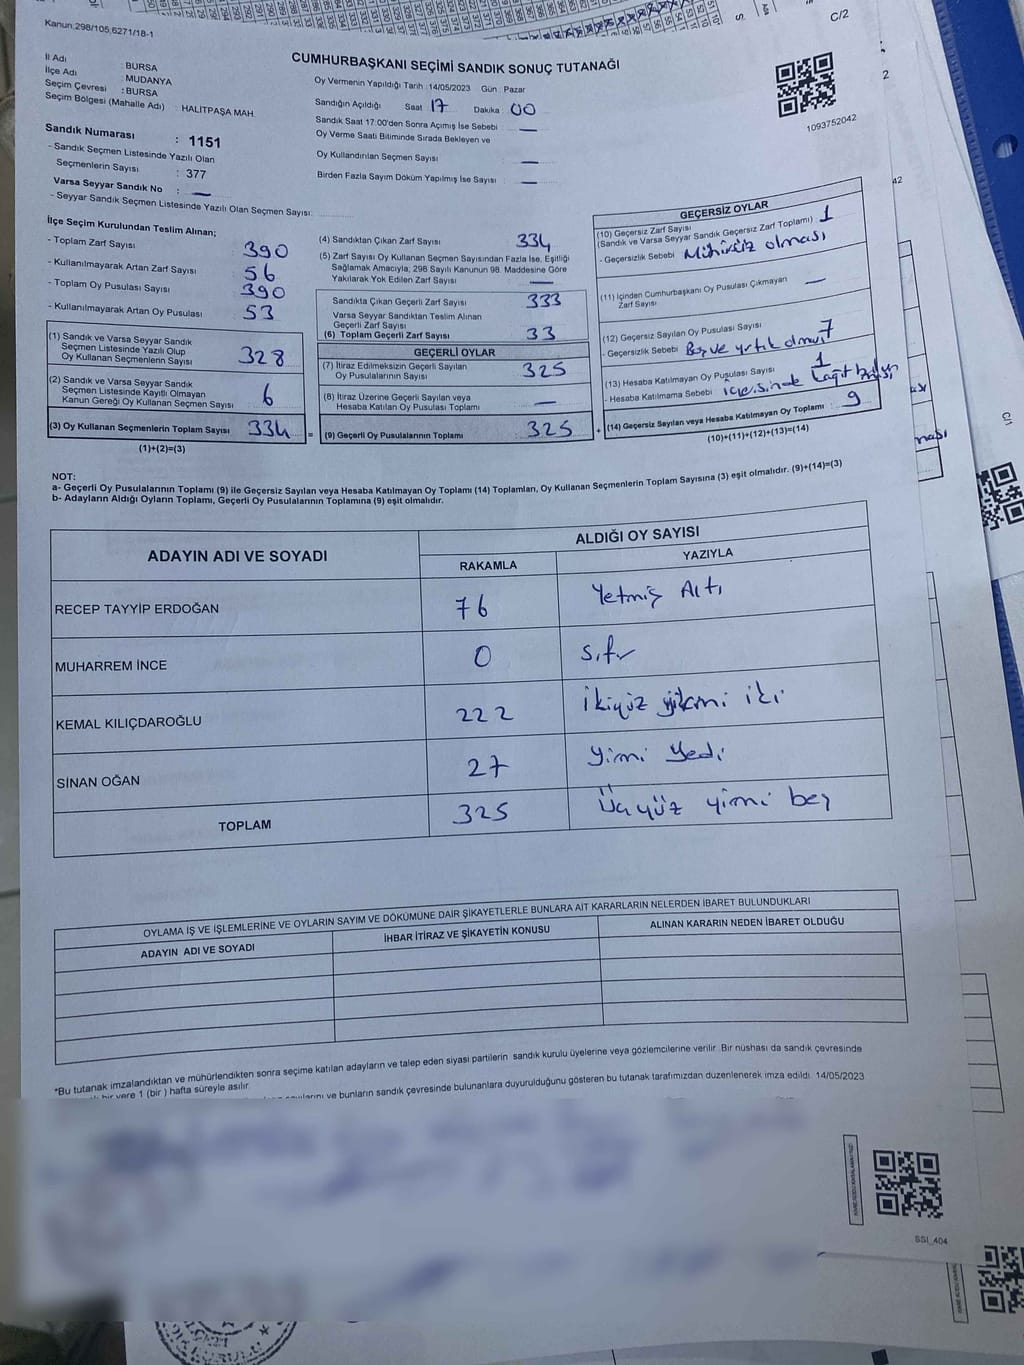 Kanun:298/105,6271/18-1
C/2
CUMHURBAŞKANI SEÇİMİ SANDIK SONUÇ TUTANAĞI
İl Adı : BURSA
İlçe Adı : MUDANYA
Seçim Çevresi : BURSA
Seçim Bölgesi (Mahalle Adı) : HALİTPAŞA MAH.
Oy Vermenin Yapıldığı Tarih : 14/05/2023 Gün : Pazar
Sandığın Açıldığı Saat : 17 Dakika : 00
Sandık Saat 17:00'den Sonra Açımış İse Sebebi —
Oy Verme Saati Bitiminde Sırada Bekleyen ve
Oy Kullandırılan Seçmen Sayısı —
Birden Fazla Sayım Döküm Yapılmış İse Sayısı —
1093752042
Sandık Numarası : 1151
- Sandık Seçmen Listesinde Yazılı Olan
Seçmenlerin Sayısı : 377
Varsa Seyyar Sandık No : —
- Seyyar Sandık Seçmen Listesinde Yazılı Olan Seçmen Sayısı:
İlçe Seçim Kurulundan Teslim Alınan;
- Toplam Zarf Sayısı 390
- Kullanılmayarak Artan Zarf Sayısı 56
- Toplam Oy Pusulası Sayısı 390
- Kullanılmayarak Artan Oy Pusulası 53
(1) Sandık ve Varsa Seyyar Sandık
Seçmen Listesinde Yazılı Olup
Oy Kullanan Seçmenlerin Sayısı 328
(2) Sandık ve Varsa Seyyar Sandık
Seçmen Listesinde Kayıtlı Olmayan
Kanun Gereği Oy Kullanan Seçmen Sayısı 6
(3) Oy Kullanan Seçmenlerin Toplam Sayısı 334 =
(1)+(2)=(3)
(4) Sandıktan Çıkan Zarf Sayısı 334
(5) Zarf Sayısı Oy Kullanan Seçmen Sayısından Fazla İse, Eşitliği
Sağlamak Amacıyla, 298 Sayılı Kanunun 98. Maddesine Göre
Yakılarak Yok Edilen Zarf Sayısı —
Sandıkta Çıkan Geçerli Zarf Sayısı 333
Varsa Seyyar Sandıktan Teslim Alınan
Geçerli Zarf Sayısı
(6) Toplam Geçerli Zarf Sayısı 33
GEÇERLİ OYLAR
(7) İtiraz Edilmeksizin Geçerli Sayılan
Oy Pusulalarının Sayısı 325
(8) İtiraz Üzerine Geçerli Sayılan veya
Hesaba Katılan Oy Pusulası Toplamı —
(9) Geçerli Oy Pusulalarının Toplamı 325 +
GEÇERSİZ OYLAR
(10) Geçersiz Zarf Sayısı
(Sandık ve Varsa Seyyar Sandık Geçersiz Zarf Toplamı) : 1
- Geçersizlik Sebebi Mühürsüz olması
(11) İçinden Cumhurbaşkanı Oy Pusulası Çıkmayan
Zarf Sayısı —
(12) Geçersiz Sayılan Oy Pusulası Sayısı : 7
- Geçersizlik Sebebi Boş ve yırtık olması
(13) Hesaba Katılmayan Oy Pusulası Sayısı : 1
- Hesaba Katılmama Sebebi : içerisinde kağıt
(14) Geçersiz Sayılan veya Hesaba Katılmayan Oy Toplamı : 9
(10)+(11)+(12)+(13)=(14)
NOT:
a- Geçerli Oy Pusulalarının Toplamı (9) ile Geçersiz Sayılan veya Hesaba Katılmayan Oy Toplamı (14) Toplamları, Oy Kullanan Seçmenlerin Toplam Sayısına (3) eşit olmalıdır. (9)+(14)=(3)
b- Adayların Aldığı Oyların Toplamı, Geçerli Oy Pusulalarının Toplamına (9) eşit olmalıdır.
ADAYIN ADI VE SOYADI
ALDIĞI OY SAYISI
RAKAMLA YAZIYLA
RECEP TAYYİP ERDOĞAN 76 Yetmiş Altı
MUHARREM İNCE 0 Sıfır
KEMAL KILIÇDAROĞLU 222 İkiyüz yirmi iki
SİNAN OĞAN 27 Yirmi Yedi
TOPLAM 325 Üçyüz yirmi beş
OYLAMA İŞ VE İŞLEMLERİNE VE OYLARIN SAYIM VE DÖKÜMÜNE DAİR ŞİKAYETLERLE BUNLARA AİT KARARLARIN NELERDEN İBARET BULUNDUKLARI
ADAYIN ADI VE SOYADI
İHBAR İTİRAZ VE ŞİKAYETİN KONUSU
ALINAN KARARIN NEDEN İBARET OLDUĞU
*Bu tutanak imzalandıktan ve mühürlendikten sonra seçime katılan adayların ve talep eden siyasi partilerin sandık kurulu üyelerine veya gözlemcilerine verilir. Bir nüshası da sandık çevresinde
bir yere 1 (bir ) hafta süreyle asılır.
ve bunların sandık çevresinde bulunanlara duyurulduğunu gösteren bu tutanak tarafımızdan düzenlenerek imza edildi. 14/05/2023
SSI_404
C/1